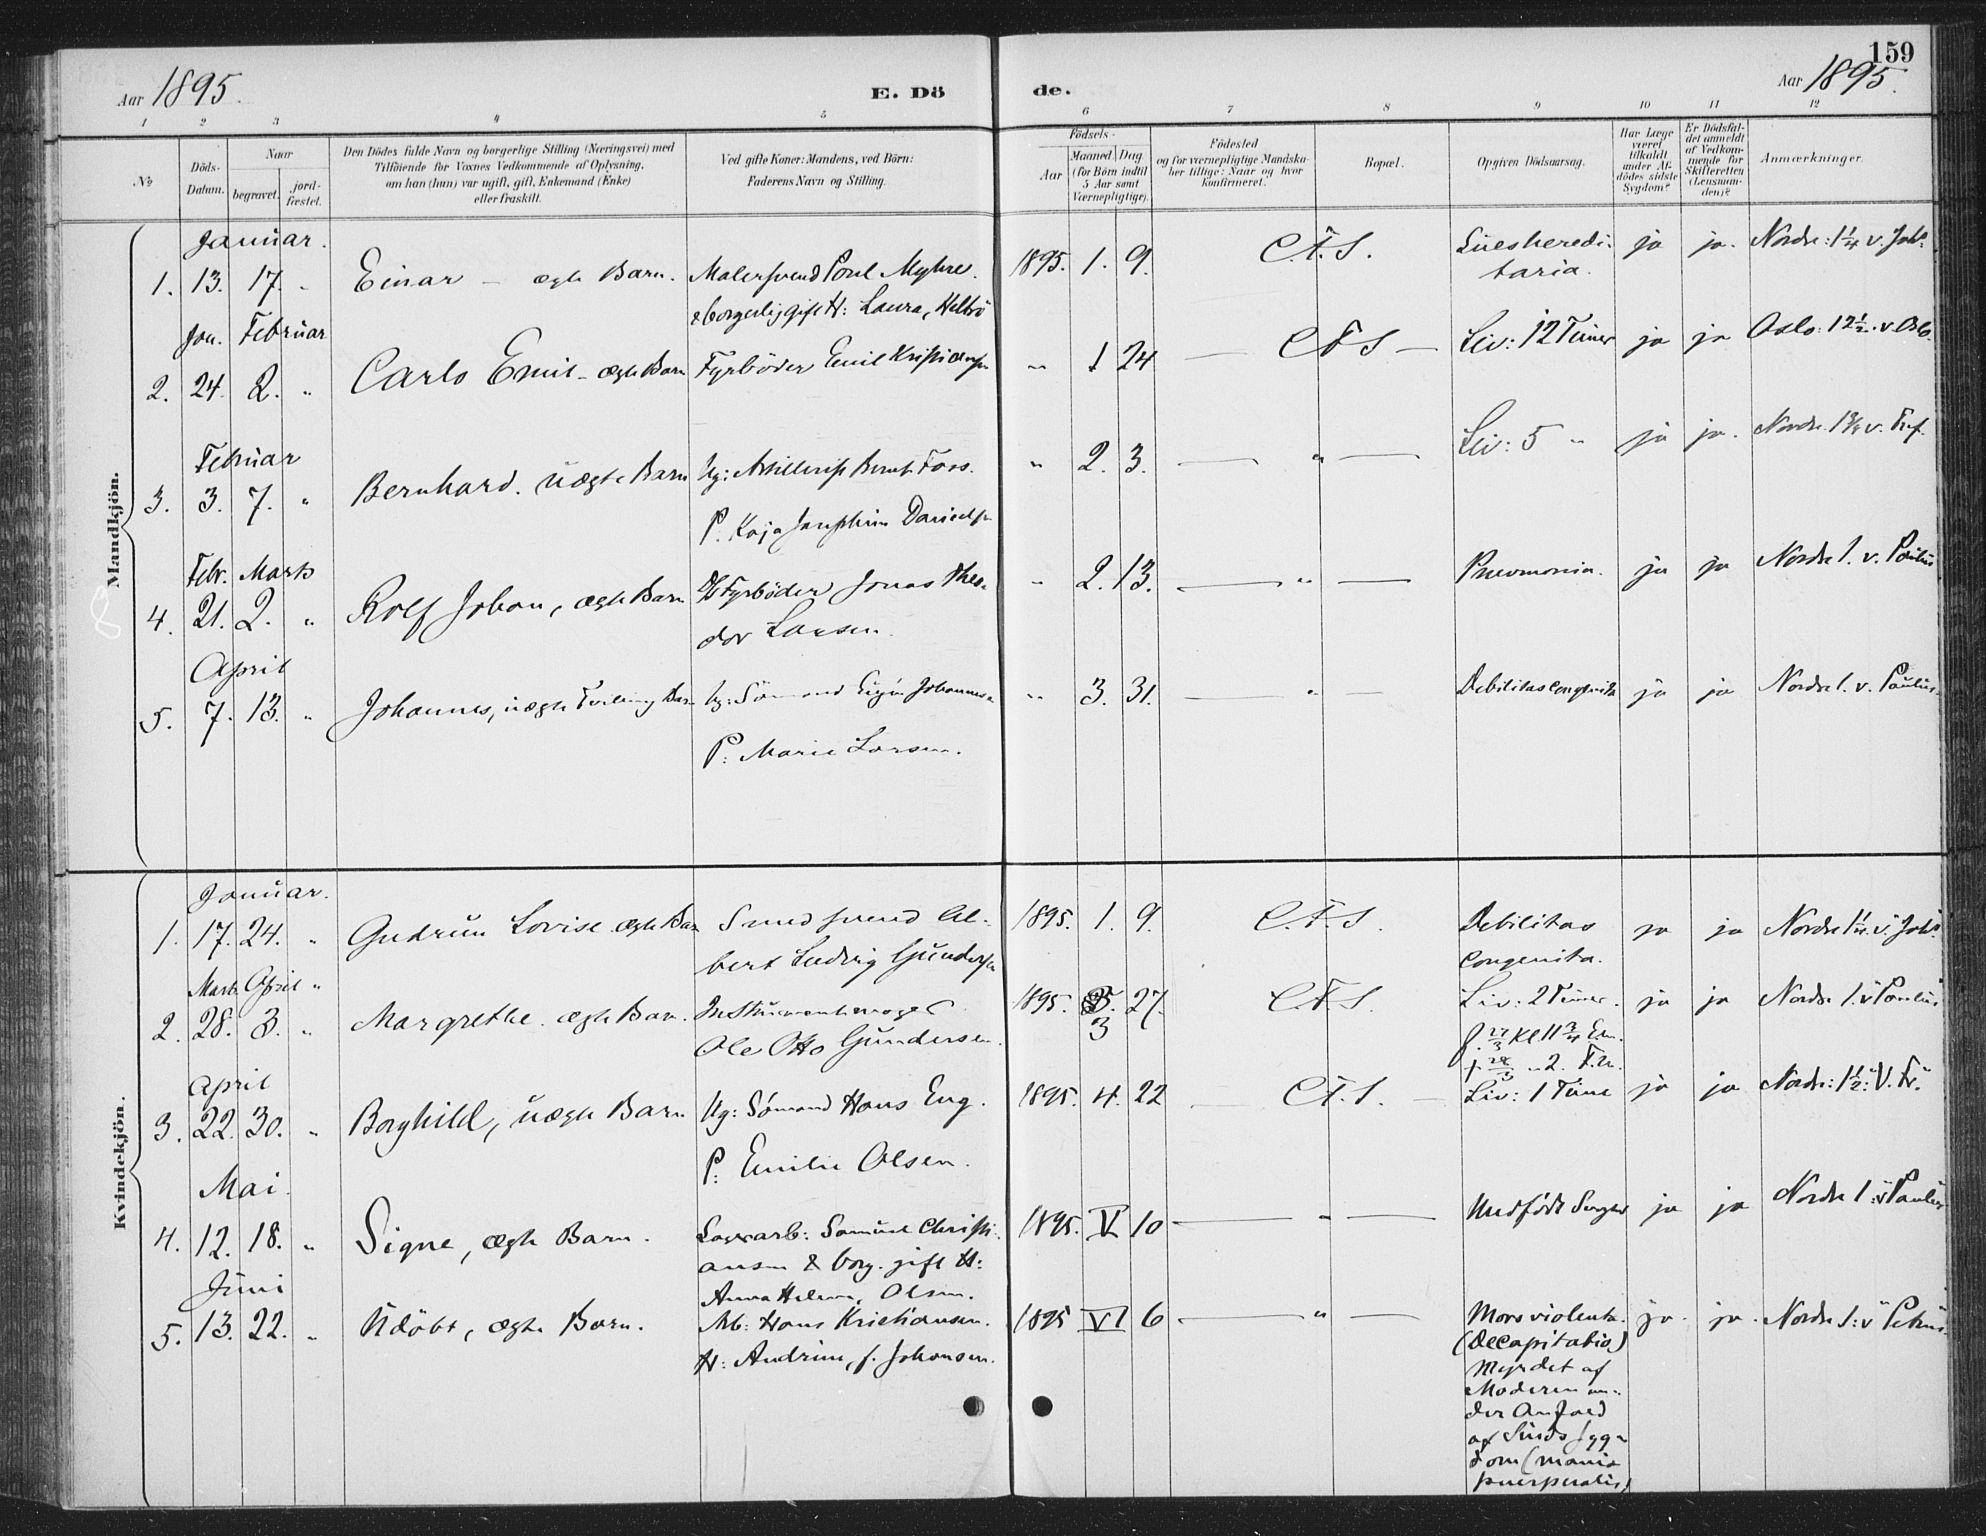 159
Aar 1895.
E. Dö
de.
Aar 1895.
1 2 3 4 5 6 7 8 9 10 11 12
No
Döds-
Datum.
Naar
begravet.
jord-
fæstet.
Den Dödes fulde Navn og borgerlige Stilling (Næringsvei) med
Tilföiende for Voxnes Vedkommende af Oplysning,
om han (hun) var ugift, gift, Enkemand (Enke)
eller fraskilt.
Ved gifte Koner: Mandens, ved Börn:
Faderens Navn og Stilling.
Födsels-
Aar
Maaned Dag
(for Börn indtil
5 Aar samt
Værnepligtige).
Födested
og for værnepligtige Mandska-
ber tillige: Naar og hvor
konfirmeret.
Bopæl.
Opgiven Dödsaarsag.
Har Læge
været
tilkaldt
under Af-
dödes sidste
Sygdom?
Er Dödsfal-
det anmeldt
af Vedkom-
mende for
Skifteretten
(Lensman-
den)?
Anmærkninger.
Mandkjön.
Januar.
1. 13. 17. " Einar – ægte Barn. Malersvend Poul Myhre. 1895. 1. 9. C.F.S. Lues heredi- ja ja. Nordre: 1 1/4 v. Joh.
& borgerlig gift H: Laura, taria.
Jan. Februar
2. 24. 2. " Carlo Emil – ægte Barn Fyrböder Emil Kristiansen " 1 24 — C F S — Liv: 12 Timer ja ja Oslo: 12 1/2 v. Oslo.
Februar
3. 3. 7. " Bernhard. uægte Barn Ug: Artillerist Bernt Foss. " 2. 3. — " — Liv: 5 " ja ja. Nordre.
P. Kaja Josephine Danielsen
Febr. Marts
4. 21. 2. " Rolf Johan, ægte Barn Fyrböder Jonas Theo- " 2. 13. — " — Pneumonia. ja ja Nordre 1. v. Paulus
dor Larsen.
April
5. 7. 13. " Johannes, uægte Tvilling Barn Ug: Sömand Johannes " 3. 31. — " — Debilitas congenita ja ja Nordre 1. v. Paulus
P: Marie Larsen.
Kvindekjön.
Januar.
1. 17. 24. " Gudrun Lovise ægte Barn Smedsvend Al- 1895. 1. 9. C.F.S. Debilitas ja ja Nordre 1 1/4 v. Joh.
bert Ludvig Gundersen congenita.
Marts April "
2. 28. 3. " Margrethe. ægte Barn. Instrumentmager 1895. 3 27. C.F.S. Liv: 2 Timer. ja ja Nordre 1. v Paulus
Ole Otto Gundersen. f. 27/3 Kl. 11 3/4 Em.
+ 28/3 " 2. F.M.
April
3. 22. 30. " Borghild, uægte Barn Ug: Sömand Hans Eng. 1895. 4. 22 — C.F.S. — Liv: 1 Time ja ja Nordre: 1 1/2: V. Fr.
P: Emilie Olsen.
Mai.
4. 12. 18. " Signe, ægte Barn. Samuel Christi- 1895. V 10 — " — Medfödt ja ja Nordre 1: v Paulus
ansen & borg. gift H:
Anna Helene, Olsen.
Juni
5. 13. 22. " Udöbt, ægte Barn. Arb: Hans Kristiansen. 1895 VI 6 — " — Mors violenta. ja. ja. Nordre 1: v Petrus.
H: Andrine, f. Johansen. (Decapitatio)
Myrdet af
Moderen un-
der Anfald
af Sindssyg-
dom (mania
puerperalis)